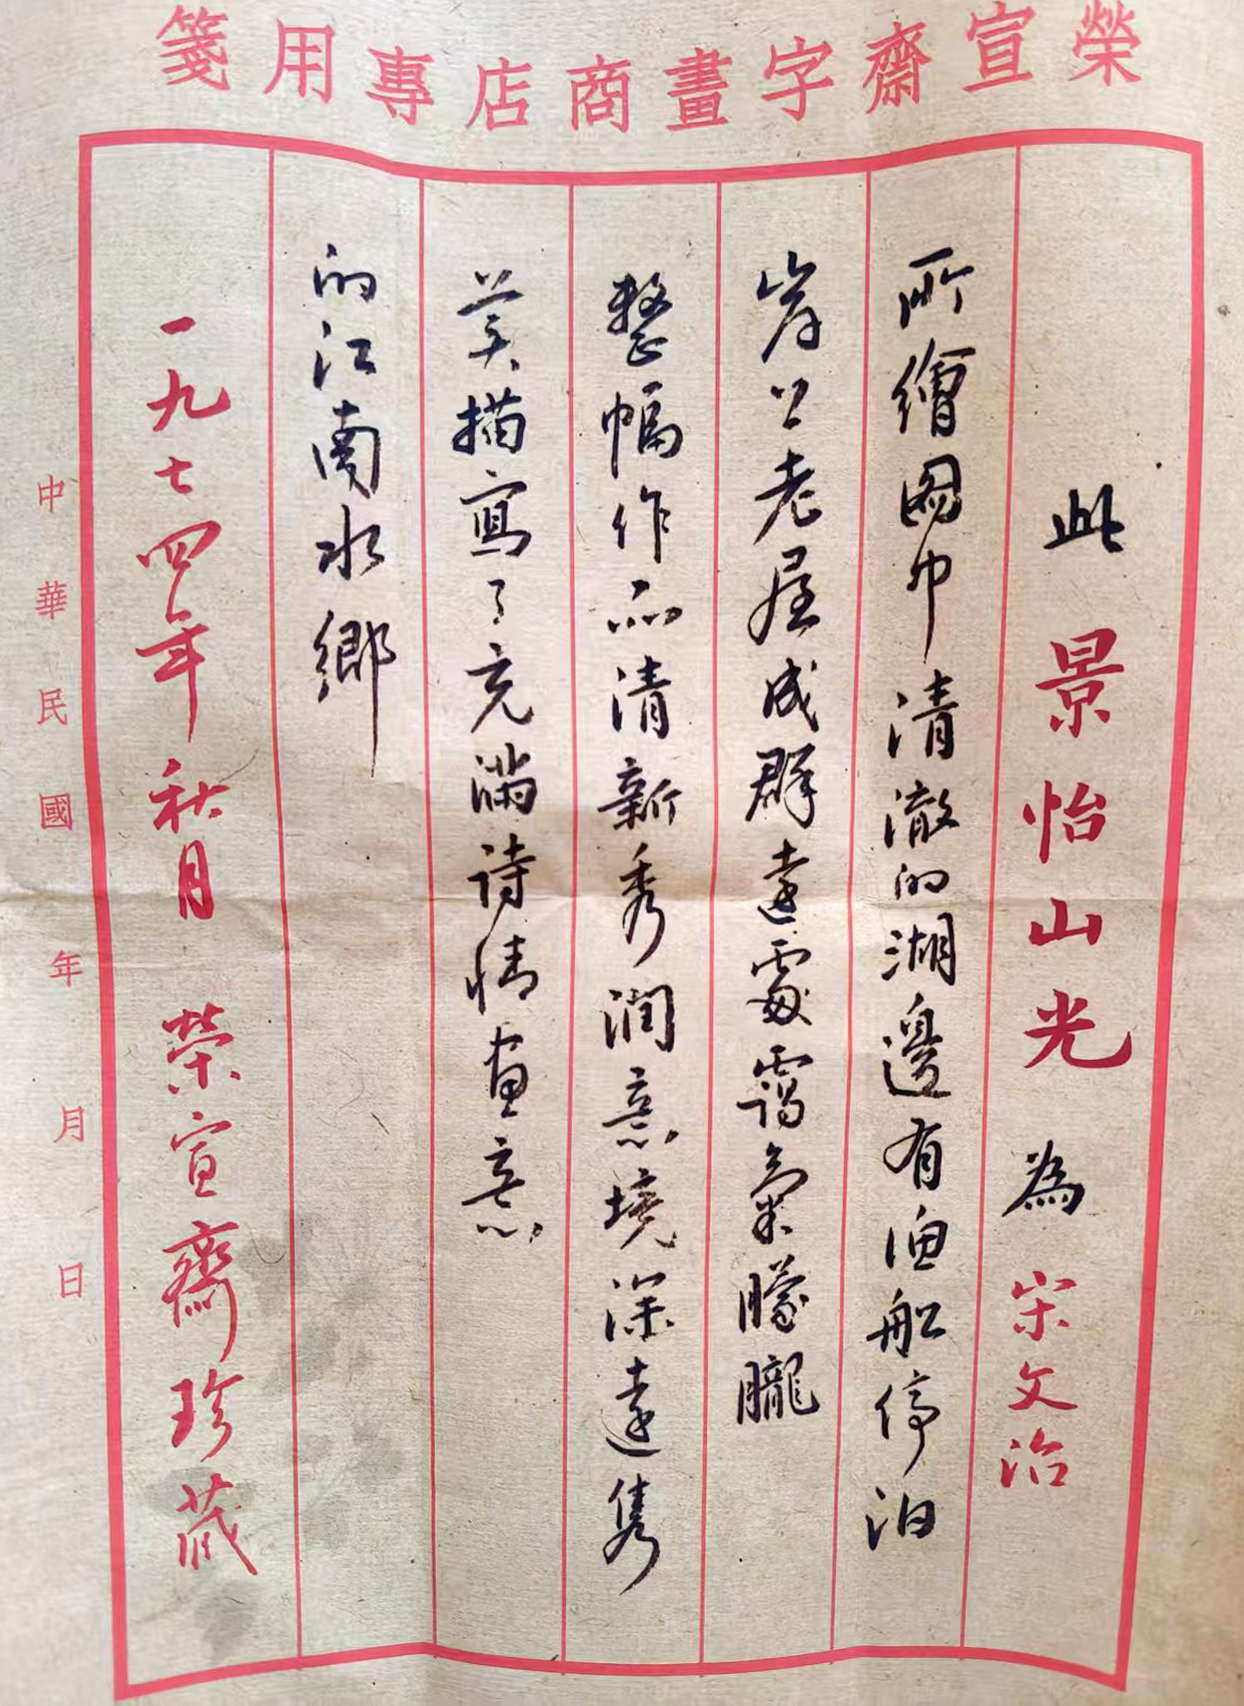 榮宣齋字畫商店專用箋
此景怡山光為宋文治
所繪圖中清澈的湖邊有漁船停泊
岸上老屋成群遠處靄氣朦朧
整幅作品清新秀潤意境深遠雋
美描寫了充滿诗情画意
的江南水鄉
一九七四年秋月榮宣齋珍藏
中華民國年月日